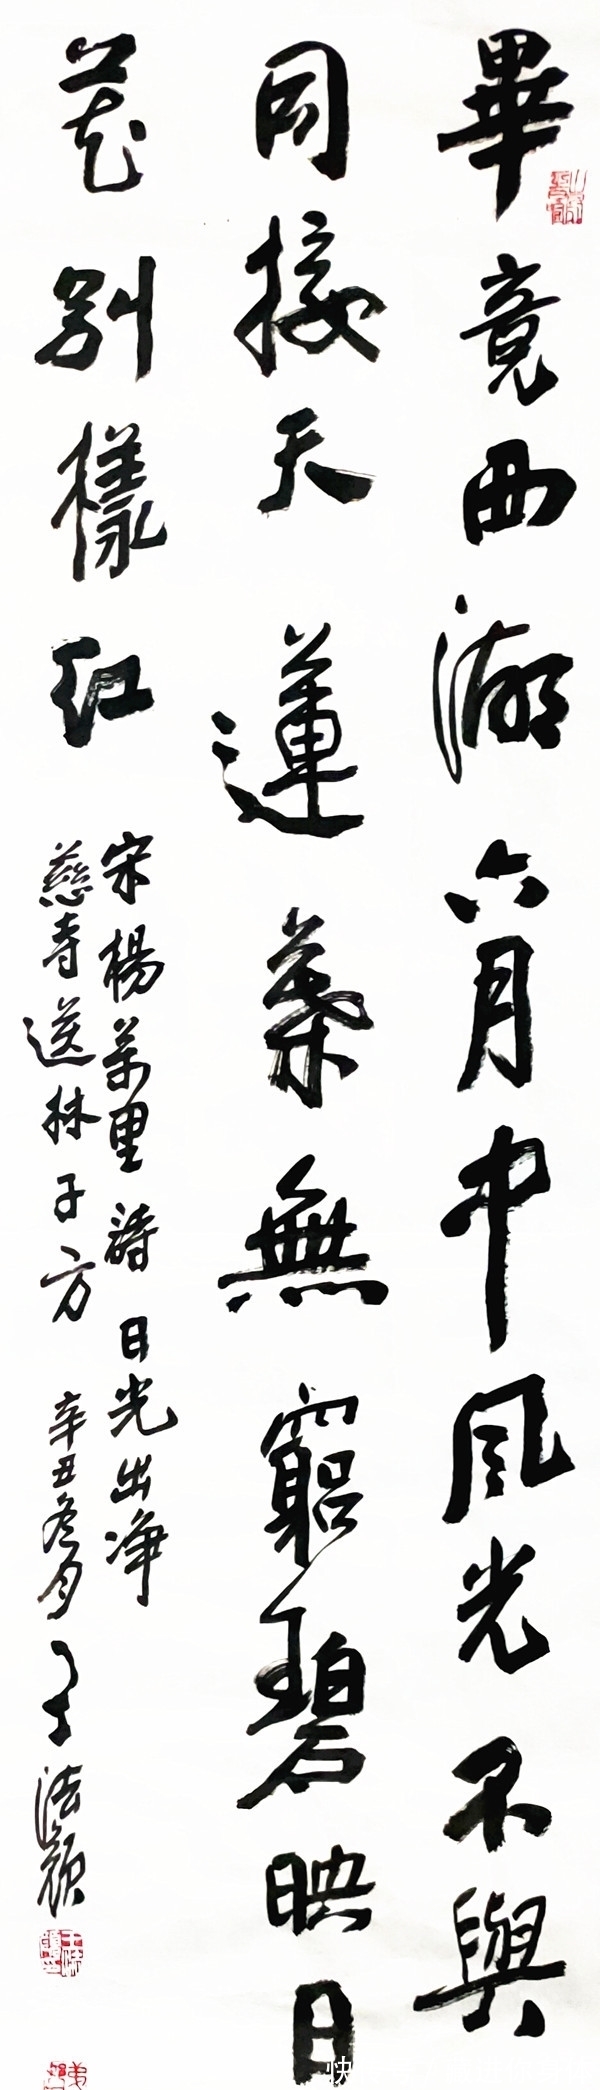 畢竟西湖六月中風光不與
同接天蓮葉無窮碧映日
花別樣紅
宋楊萬里詩日光出淨
慈寺送林子方 辛丑冬月 法顏
快